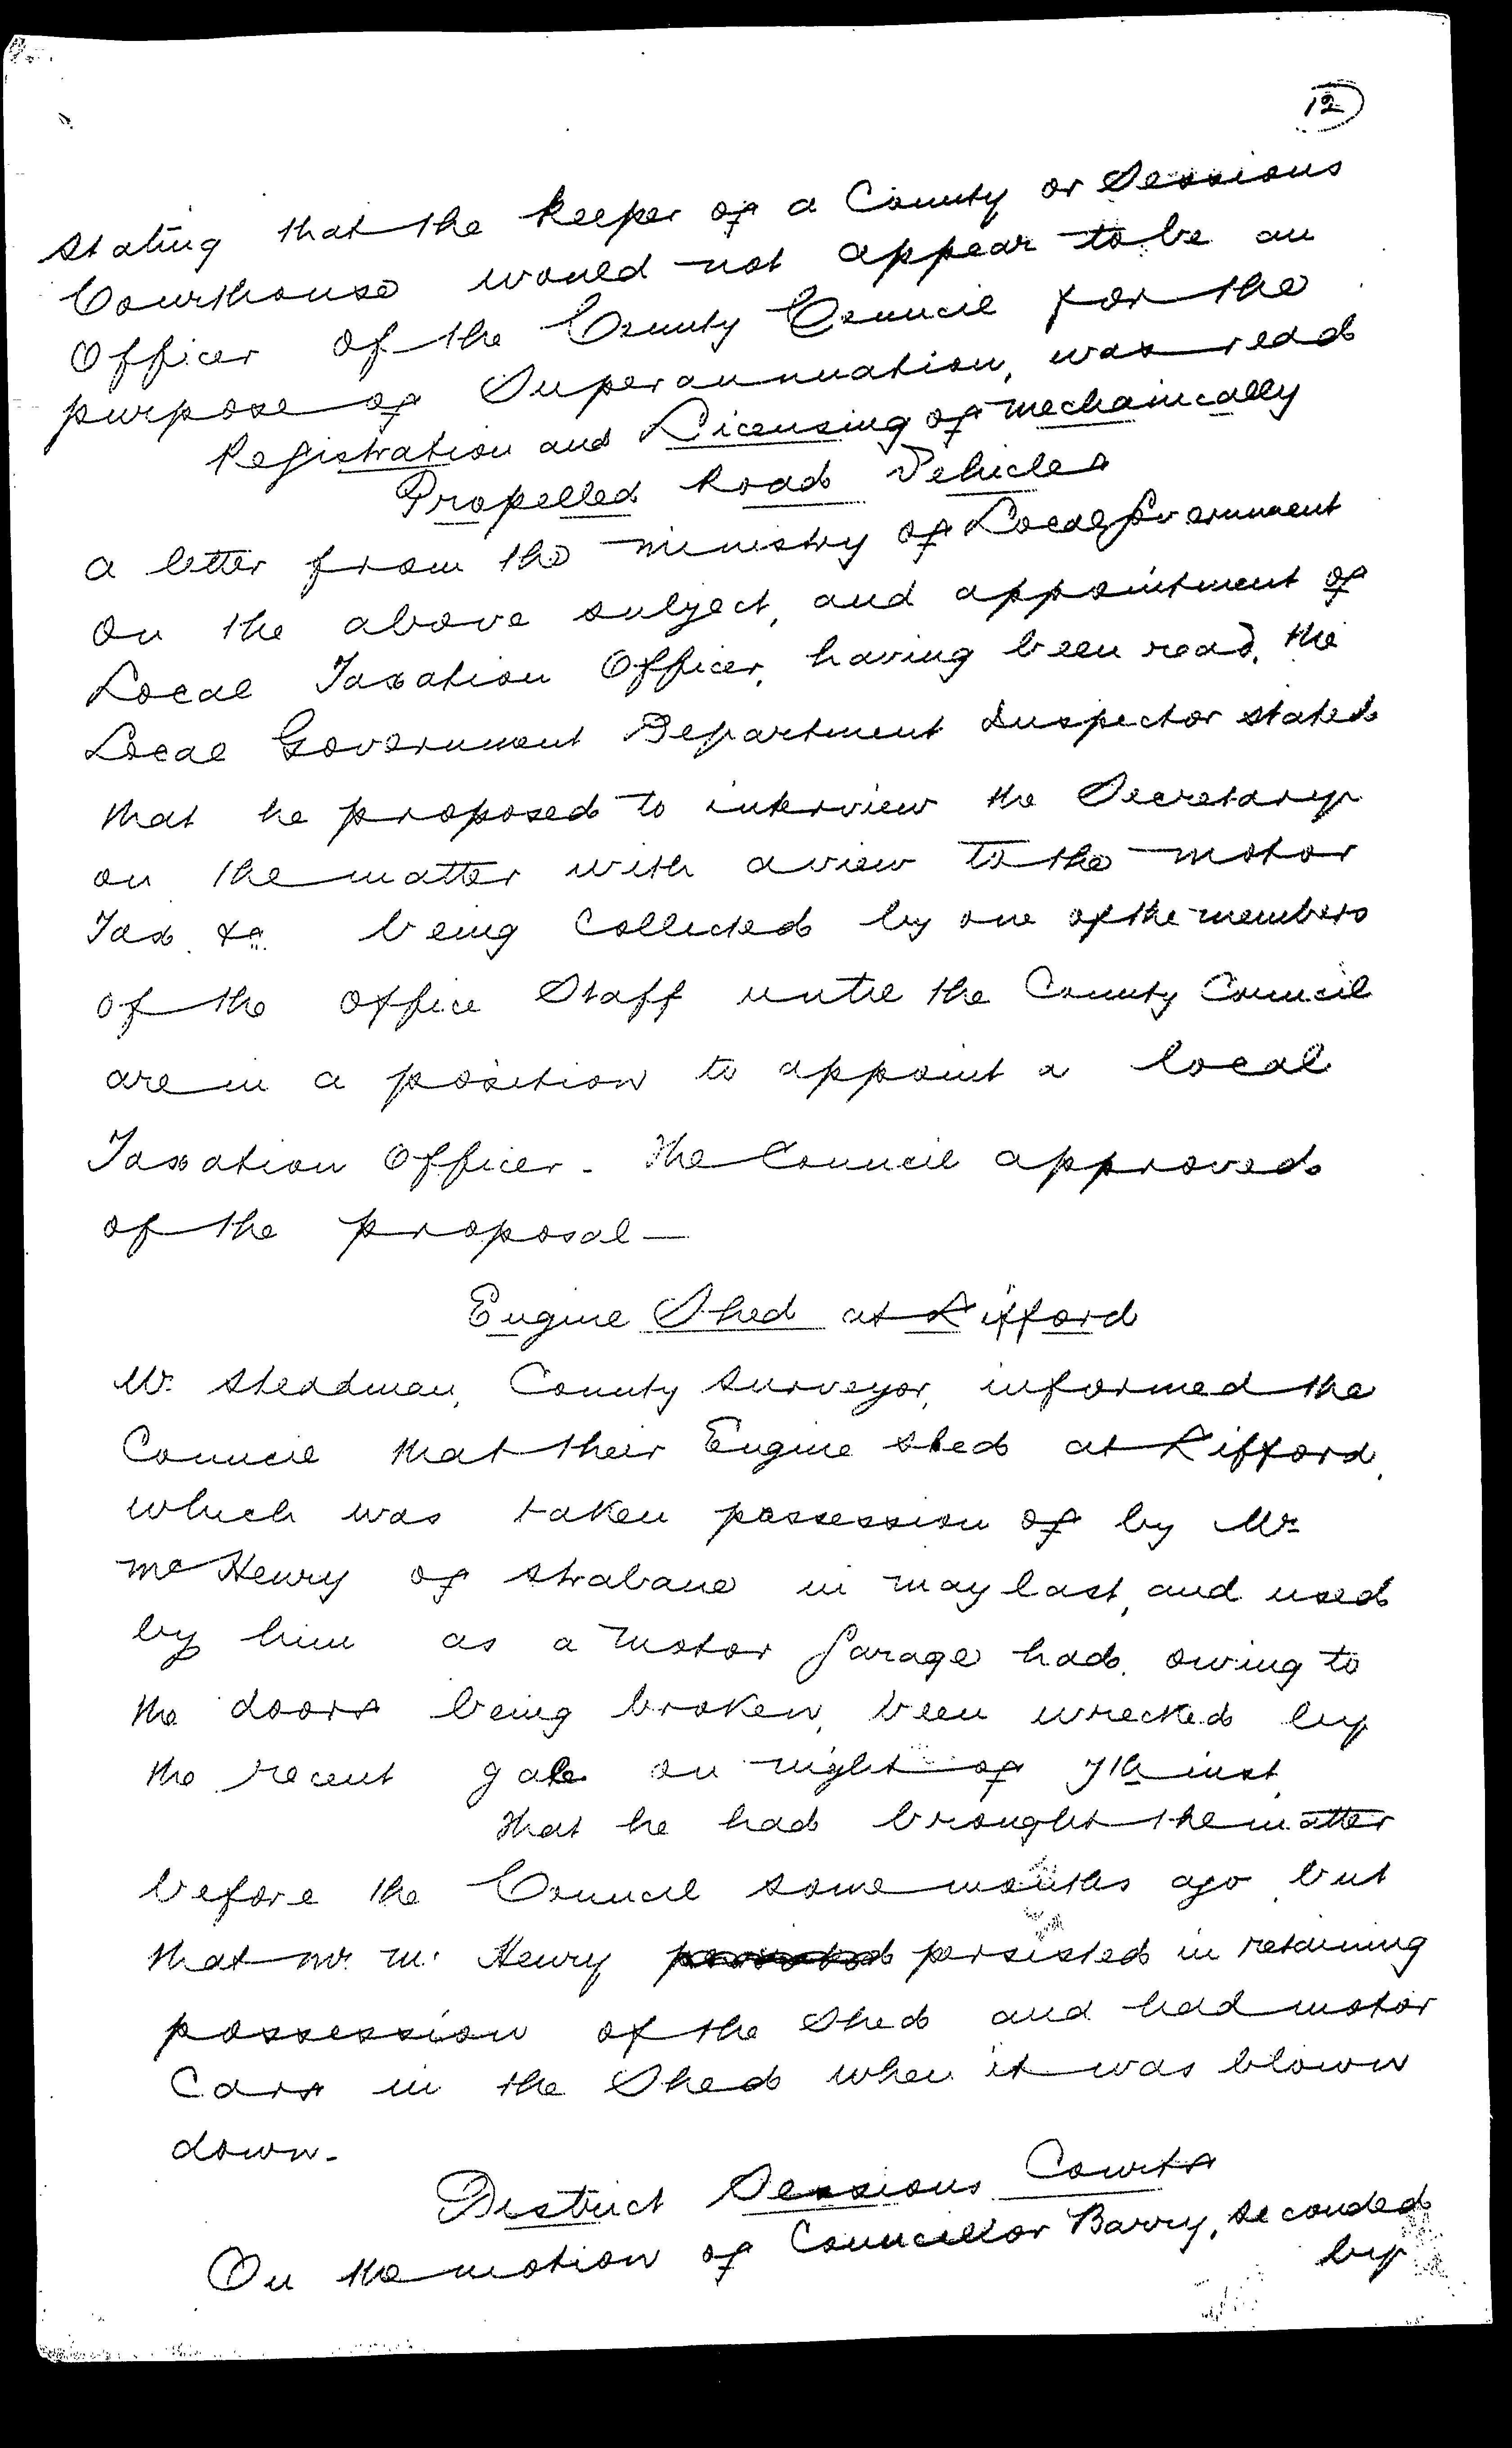 12
stating that the keeper of a County or Sessions
Courthouse would not appear to be an
Officer of the County Council for the
purpose of Superannuation, was read
Registration and Licensing of Mechanically
Propelled Road Vehicles
a letter from the Ministry of Local Government
on the above subject, and appointment of
Local Taxation Officer, having been read, the
Local Government Department Inspector stated
that he proposed to interview the Secretary
on the matter with a view to the Motor
Tax &c being collected by one of the members
of the office Staff until the County Council
are in a position to appoint a local
Taxation Officer - The Council approved
of the proposal —
Engine Shed at Lifford
Mr. Steadman, County Surveyor, informed the
Council that their Engine Shed at Lifford,
which was taken possession of by Mr.
McHenry of Strabane in May last, and used
by him as a Motor Garage had, owing to
the doors being broken, been wrecked by
the recent gale on night of 7th inst,
that he had brought the matter
before the Council some months ago but
that Mr. Mc Henry persisted in retaining
possession of the Shed and had motor
Cars in the Shed when it was blown
down -
District Sessions Courts
On the motion of Councillor Barry, seconded
by